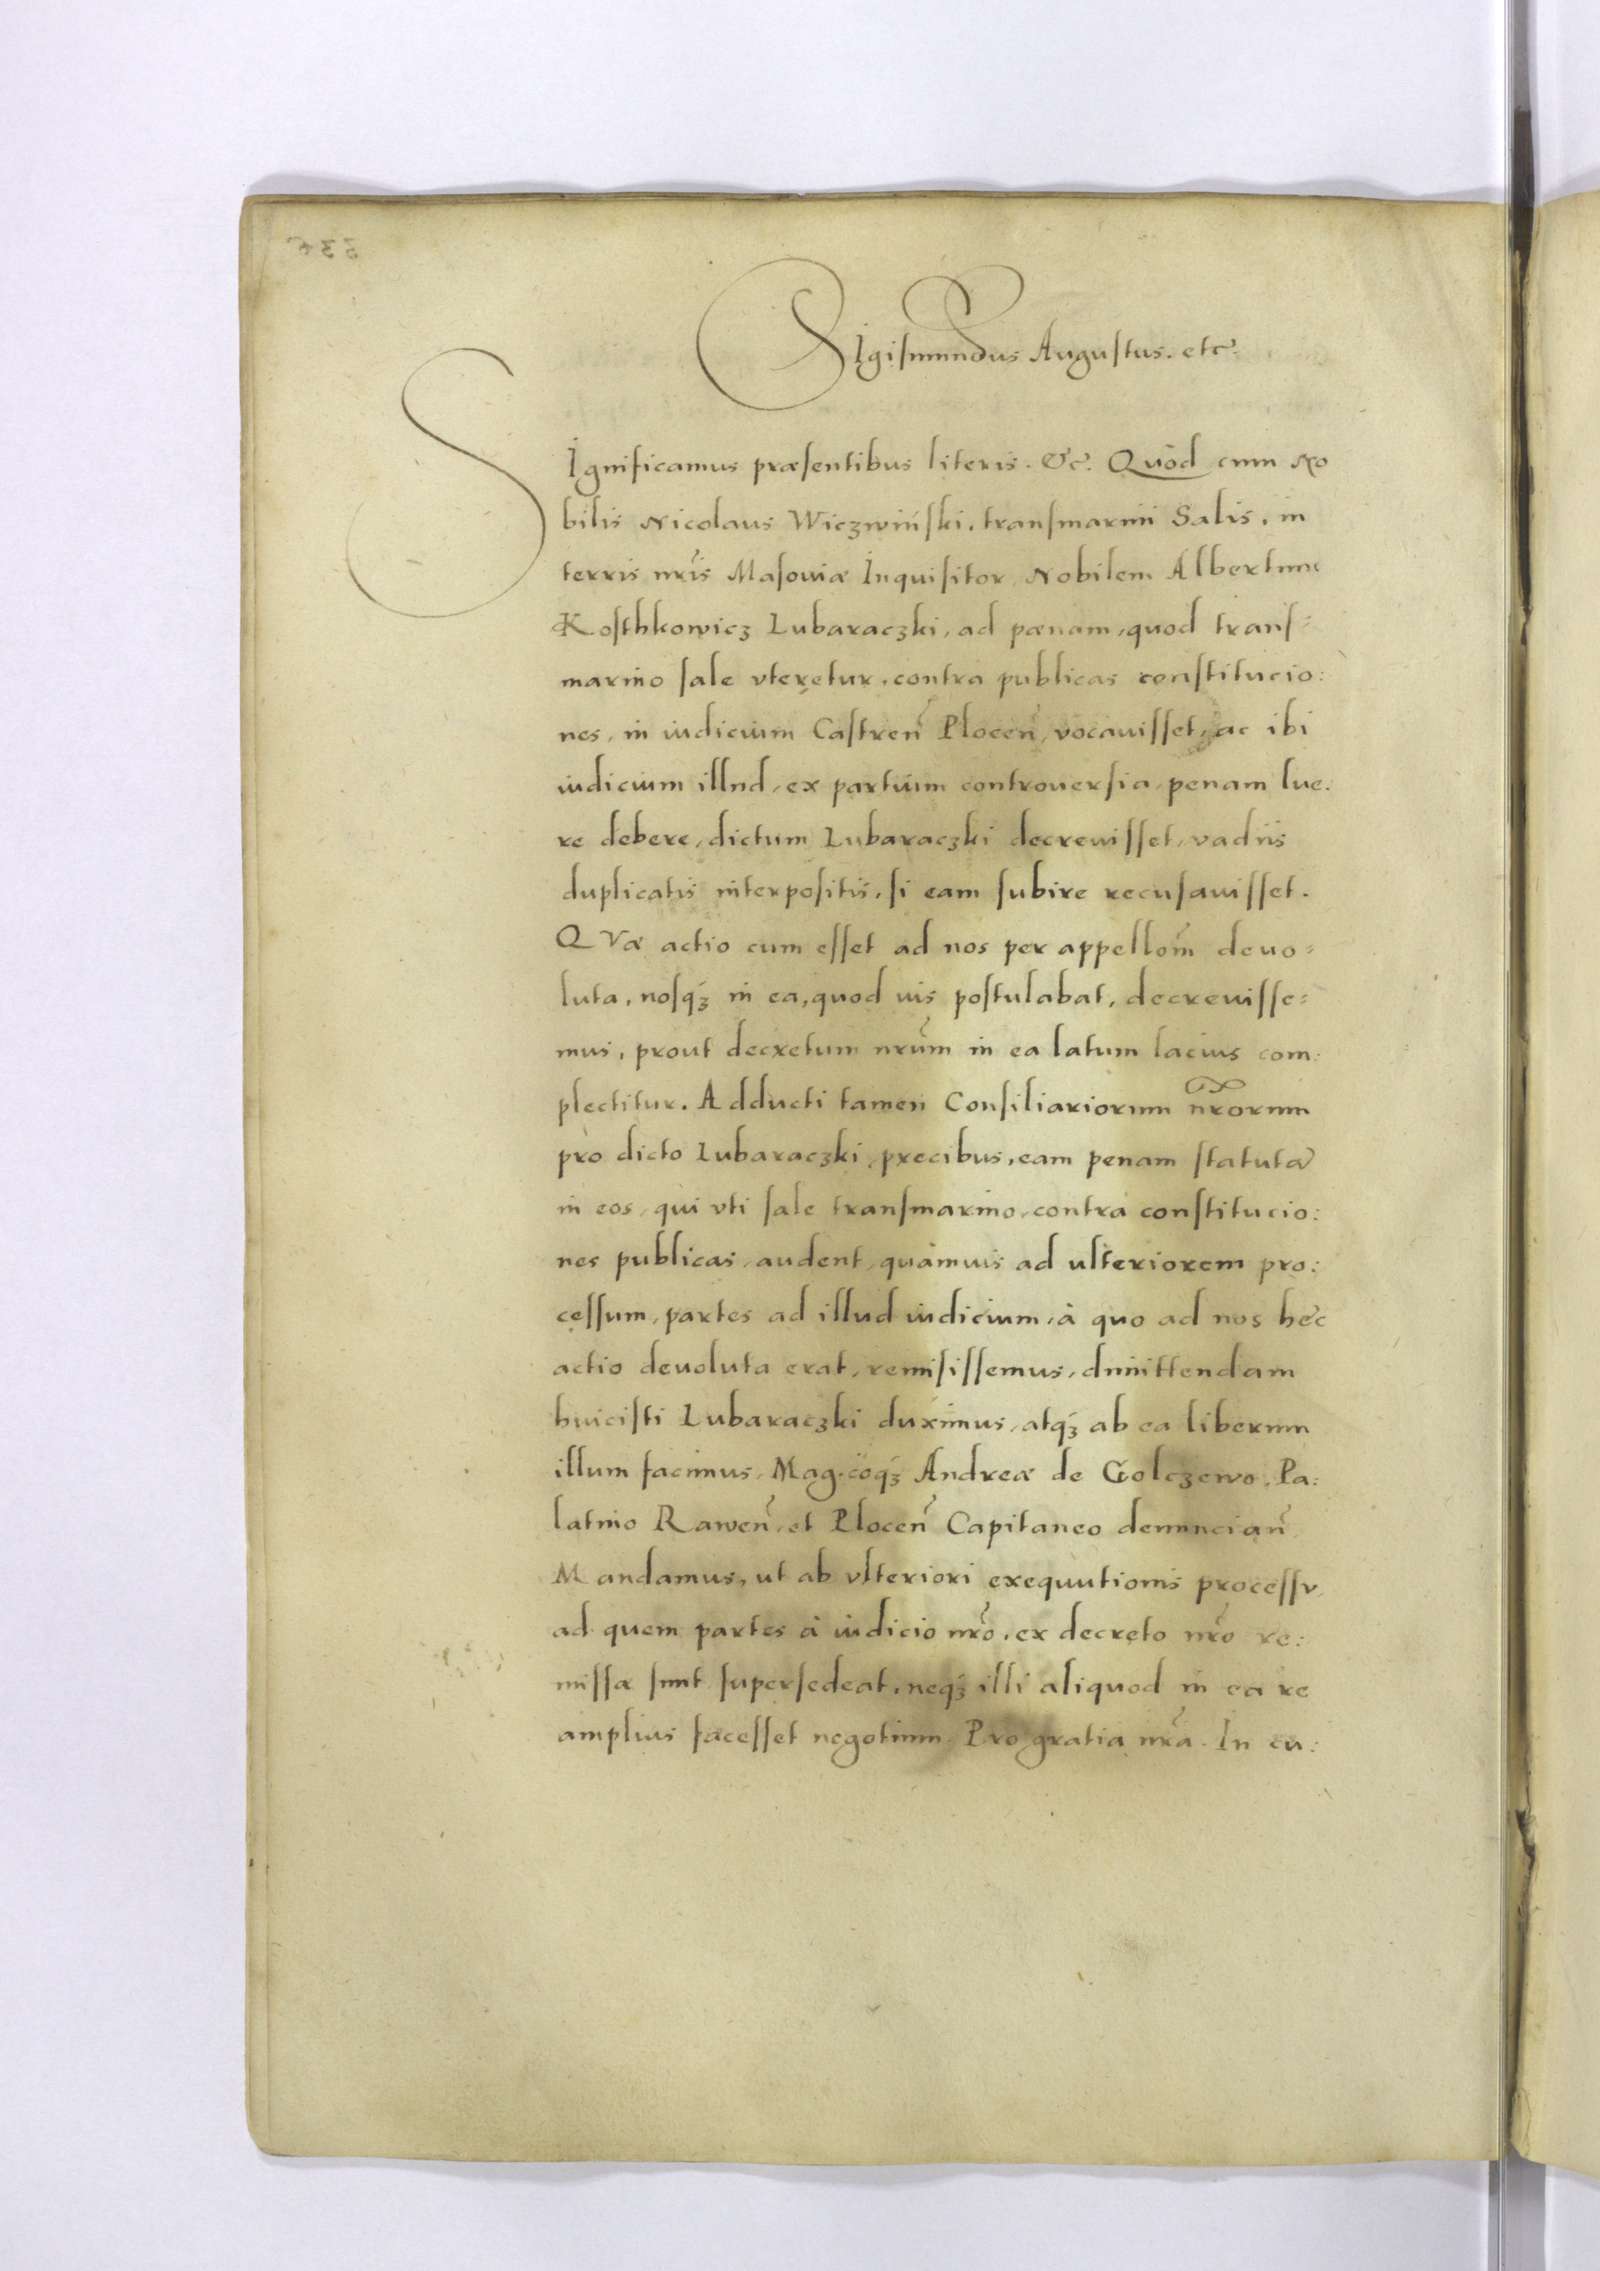 SIgismundus Augustus. etc̃.
SIgnificamus præsentibus literis. &c̃. Quòd cum No
bilis Nicolaus Wiczwiński, transmarini Salis, in
terris nr̃is Masouiæ Inquisitor, Nobilem Albertum
Kosthkowicz Lubaraczki, ad pænam, quod trans=
marino sale vteretur, contra publicas constitucio:
nes, in iudicium Castren̄ Plocen̄, vocauisset, ac ibi
iudicium illud, ex partium controuersia, penam lue:
re debere, dictum Lubaraczki decreuisset, vadiis
duplicatis interpositis, si eam subire recusauisset.
QVæ actio cum esset ad nos per appellom̄ deuo=
luta, nosq́ȝ in ea, quod uis postulabat, decreuisse=
mus, prout decretum nr̃um in ea latum lacius com:
plectitur. Adducti tamen Consiliariorum nr̃orum
pro dicto Lubaraczki, precibus, eam penam statutã
in eos, qui vti sale transmarino, contra constitucio:
nes publicas, audent, quàmuis ad ulteriorem pro:
cessum, partes ad illud iudicium, à quo ad nos hec
actio deuoluta erat, remisissemus, dimittendam
huicisti Lubaraczki duximus, atq́ȝ ab ea liberum
illum facimus, Mag.coq́ȝ Andreæ de Golczewo, Pa:
latino Rawen̄, et Plocen̄ Capitaneo denuncian̄
Mandamus, ut ab vlteriori exequutionis processv,
ad quem partes à iudicio nr̃o, ex decreto nr̃o re:
missæ sunt supersedeat, neq́ȝ illi aliquod in ea re
amplius facesset negotium. Pro gratia nr̃a. In cu: